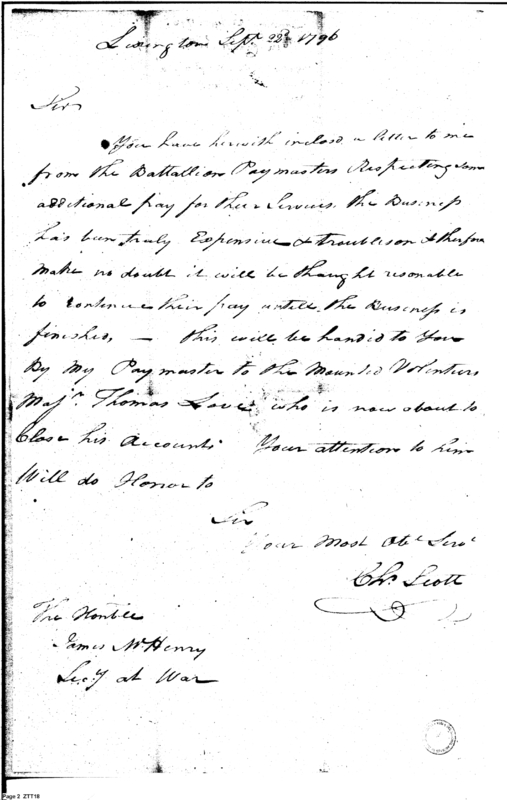 Lexington Sept. 22d 1796
Sir
You have herewith inclosd a letter to me
from the Battallion Paymasters Respecting some
additional pay for their Services. The Business
has been truly Expensive & troublesom & therfore
make no doubt it will be thought resonable
to continue their pay untill the Business is
finished, — this will be handid to You
By My Paymaster to the Mounted Volenteers
Majr. Thomas Love who is now about to
Close his Accounts Your attention to him
Will do Honor to
Sir
Your Most Obt. Servt
Chs. Scott
The Honble
James McHenry
Secy at War
Page 2 ZTT18